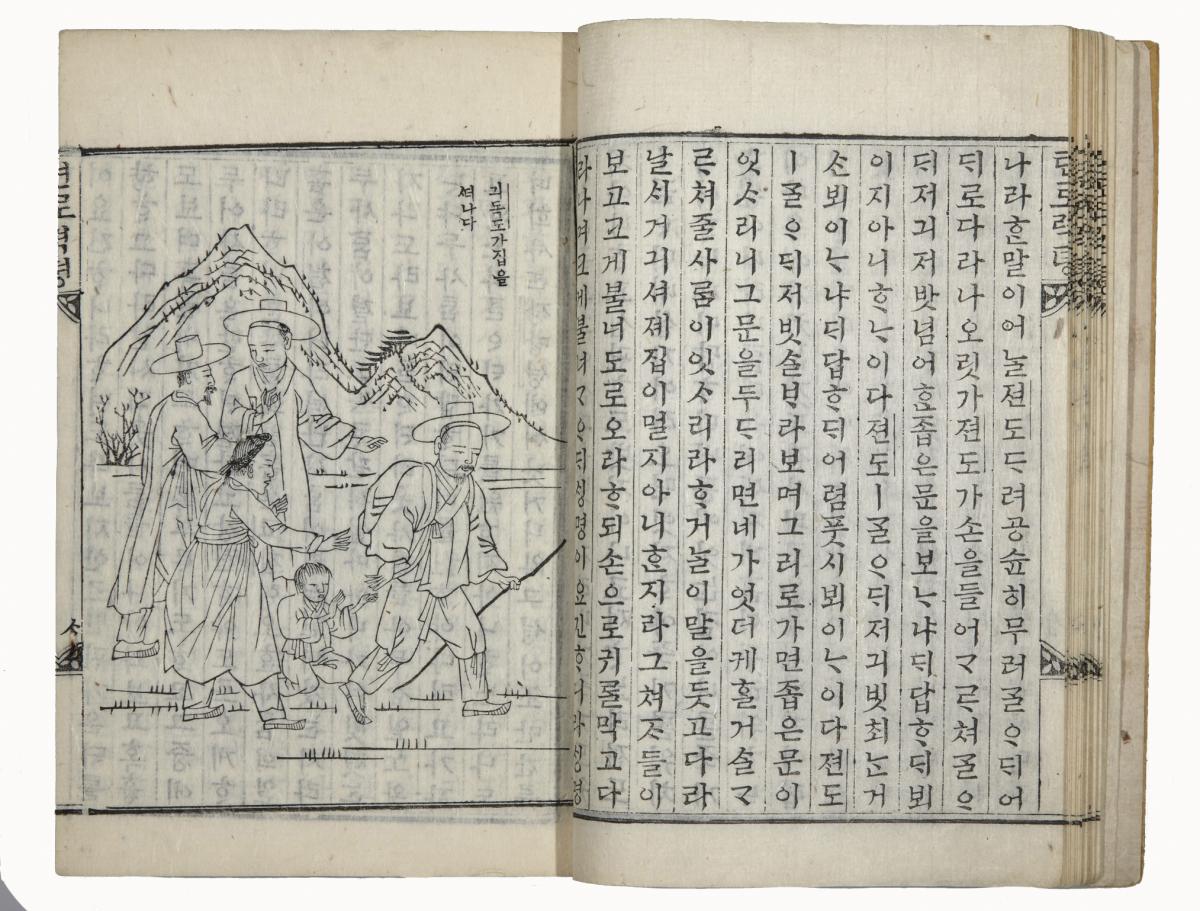 텬로력뎡
나라ᄒᆞᆫ말이어ᄂᆞᆯ젼도ᄃᆞ려공슌히무러ᄀᆞᆯᄋᆞᄃᆡ어
ᄃᆡ로다라나오릿가젼도가손을들어ᄀᆞᄅᆞ쳐ᄀᆞᆯᄋᆞ
ᄃᆡ저긔저밧념어ᄒᆞᆫ좁은문을보ᄂᆞ냐ᄃᆡ답ᄒᆞᄃᆡ뵈
이지아니ᄒᆞᄂᆞ이다젼도ㅣᄀᆞᆯᄋᆞᄃᆡ저긔빗최ᄂᆞᆫ거
ᄉᆞᆫ뵈이ᄂᆞ냐ᄃᆡ답ᄒᆞᄃᆡ어렴풋시뵈이ᄂᆞ이다젼도
ㅣᄀᆞᆯᄋᆞᄃᆡ저빗ᄉᆞᆯᄇᆞ라보며그리로가면좁은문이
잇ᄉᆞ리니그문을두ᄃᆞ리면네가엇더케ᄒᆞᆯ거ᄉᆞᆯᄀᆞ
ᄅᆞ쳐줄사ᄅᆞᆷ이잇ᄉᆞ리라ᄒᆞ거ᄂᆞᆯ이말을듯고다라
날서거긔셔졔집이멀지아니ᄒᆞᆫ지라그쳐ᄌᆞ들이
보고크게불너도로오라ᄒᆞ되손으로귀ᄅᆞᆯ막고다
라나며크게불너ᄀᆞᆯᄋᆞᄃᆡ성명이요긴ᄒᆞ니라성명
긔독도가집을
ᄯᅥ나다
텬로력뎡
ᄉᆞ